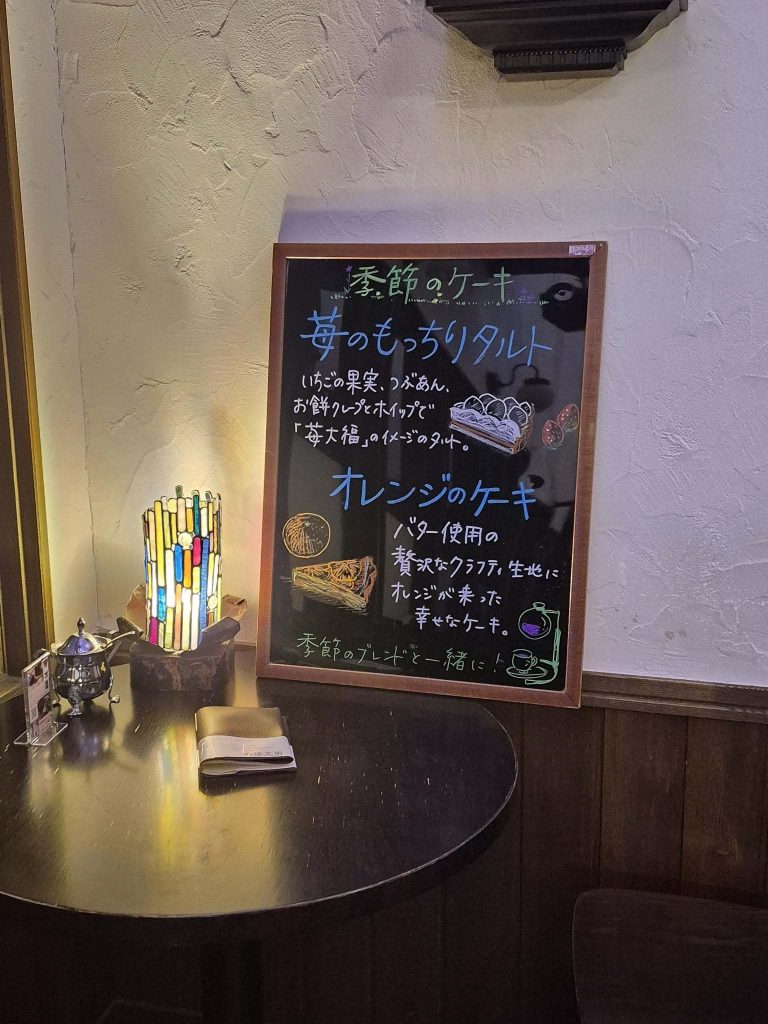 季節のケーキ
苺のもっちりタルト
いちごの果実、つぶあん、
お餅クレープとホイップで
「苺大福」のイメージのタルト。
オレンジのケーキ
バター使用の
贅沢なクラフティ生地に
オレンジが乗った
幸せなケーキ。
季節のブレンドと一緒に!